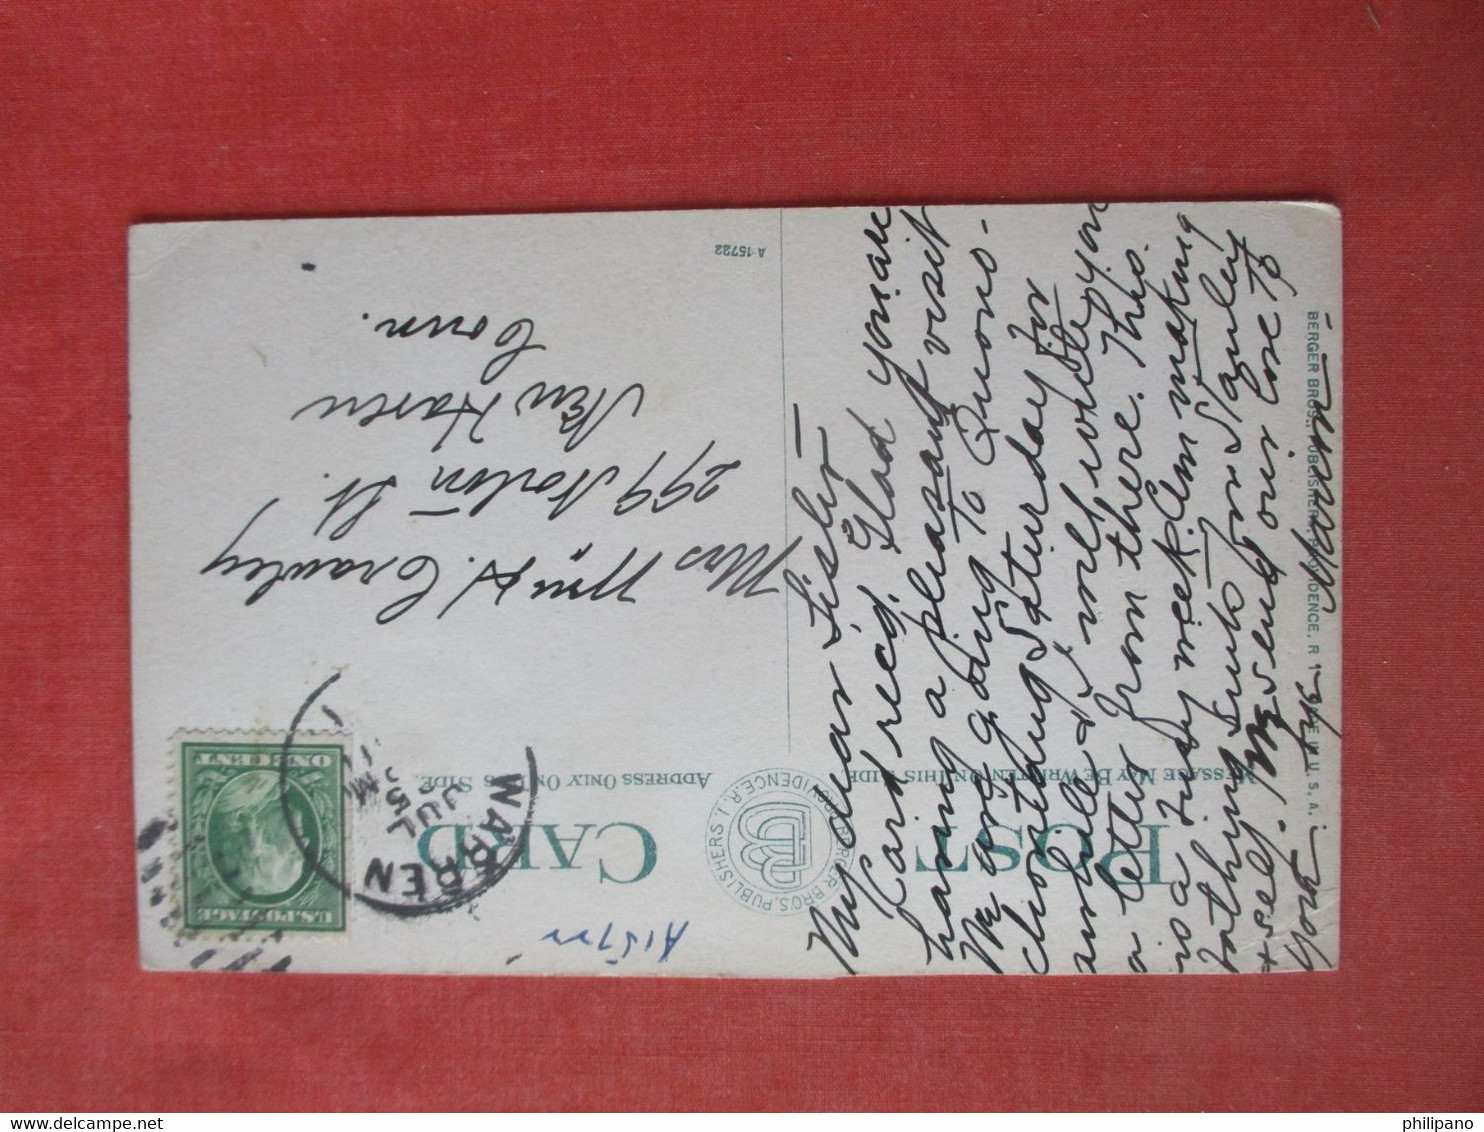 POST CARD
BERGER BRO'S. PUBLISHERS. PROVIDENCE. R. I.
MESSAGE MAY BE WRITTEN ON THIS SIDE
ADDRESS ONLY ON THIS SIDE
A 15722
BERGER BROS., PUBLISHERS, PROVIDENCE, R. I.
MADE IN U. S. A.
U.S. POSTAGE
ONE CENT
WARREN
JUL
5
A15722
Mrs Wm H. Crawley
299 Norton St.
New Haven
Conn.
My dear Sister
Card rec'd. Glad you are
having a pleasant visit
We are going to Quono-
chontaug Saturday for
awhile & I will write you
a letter from there. This
is a busy week. Em making
bathing suits for Stanley
& self. We send our love to
you.